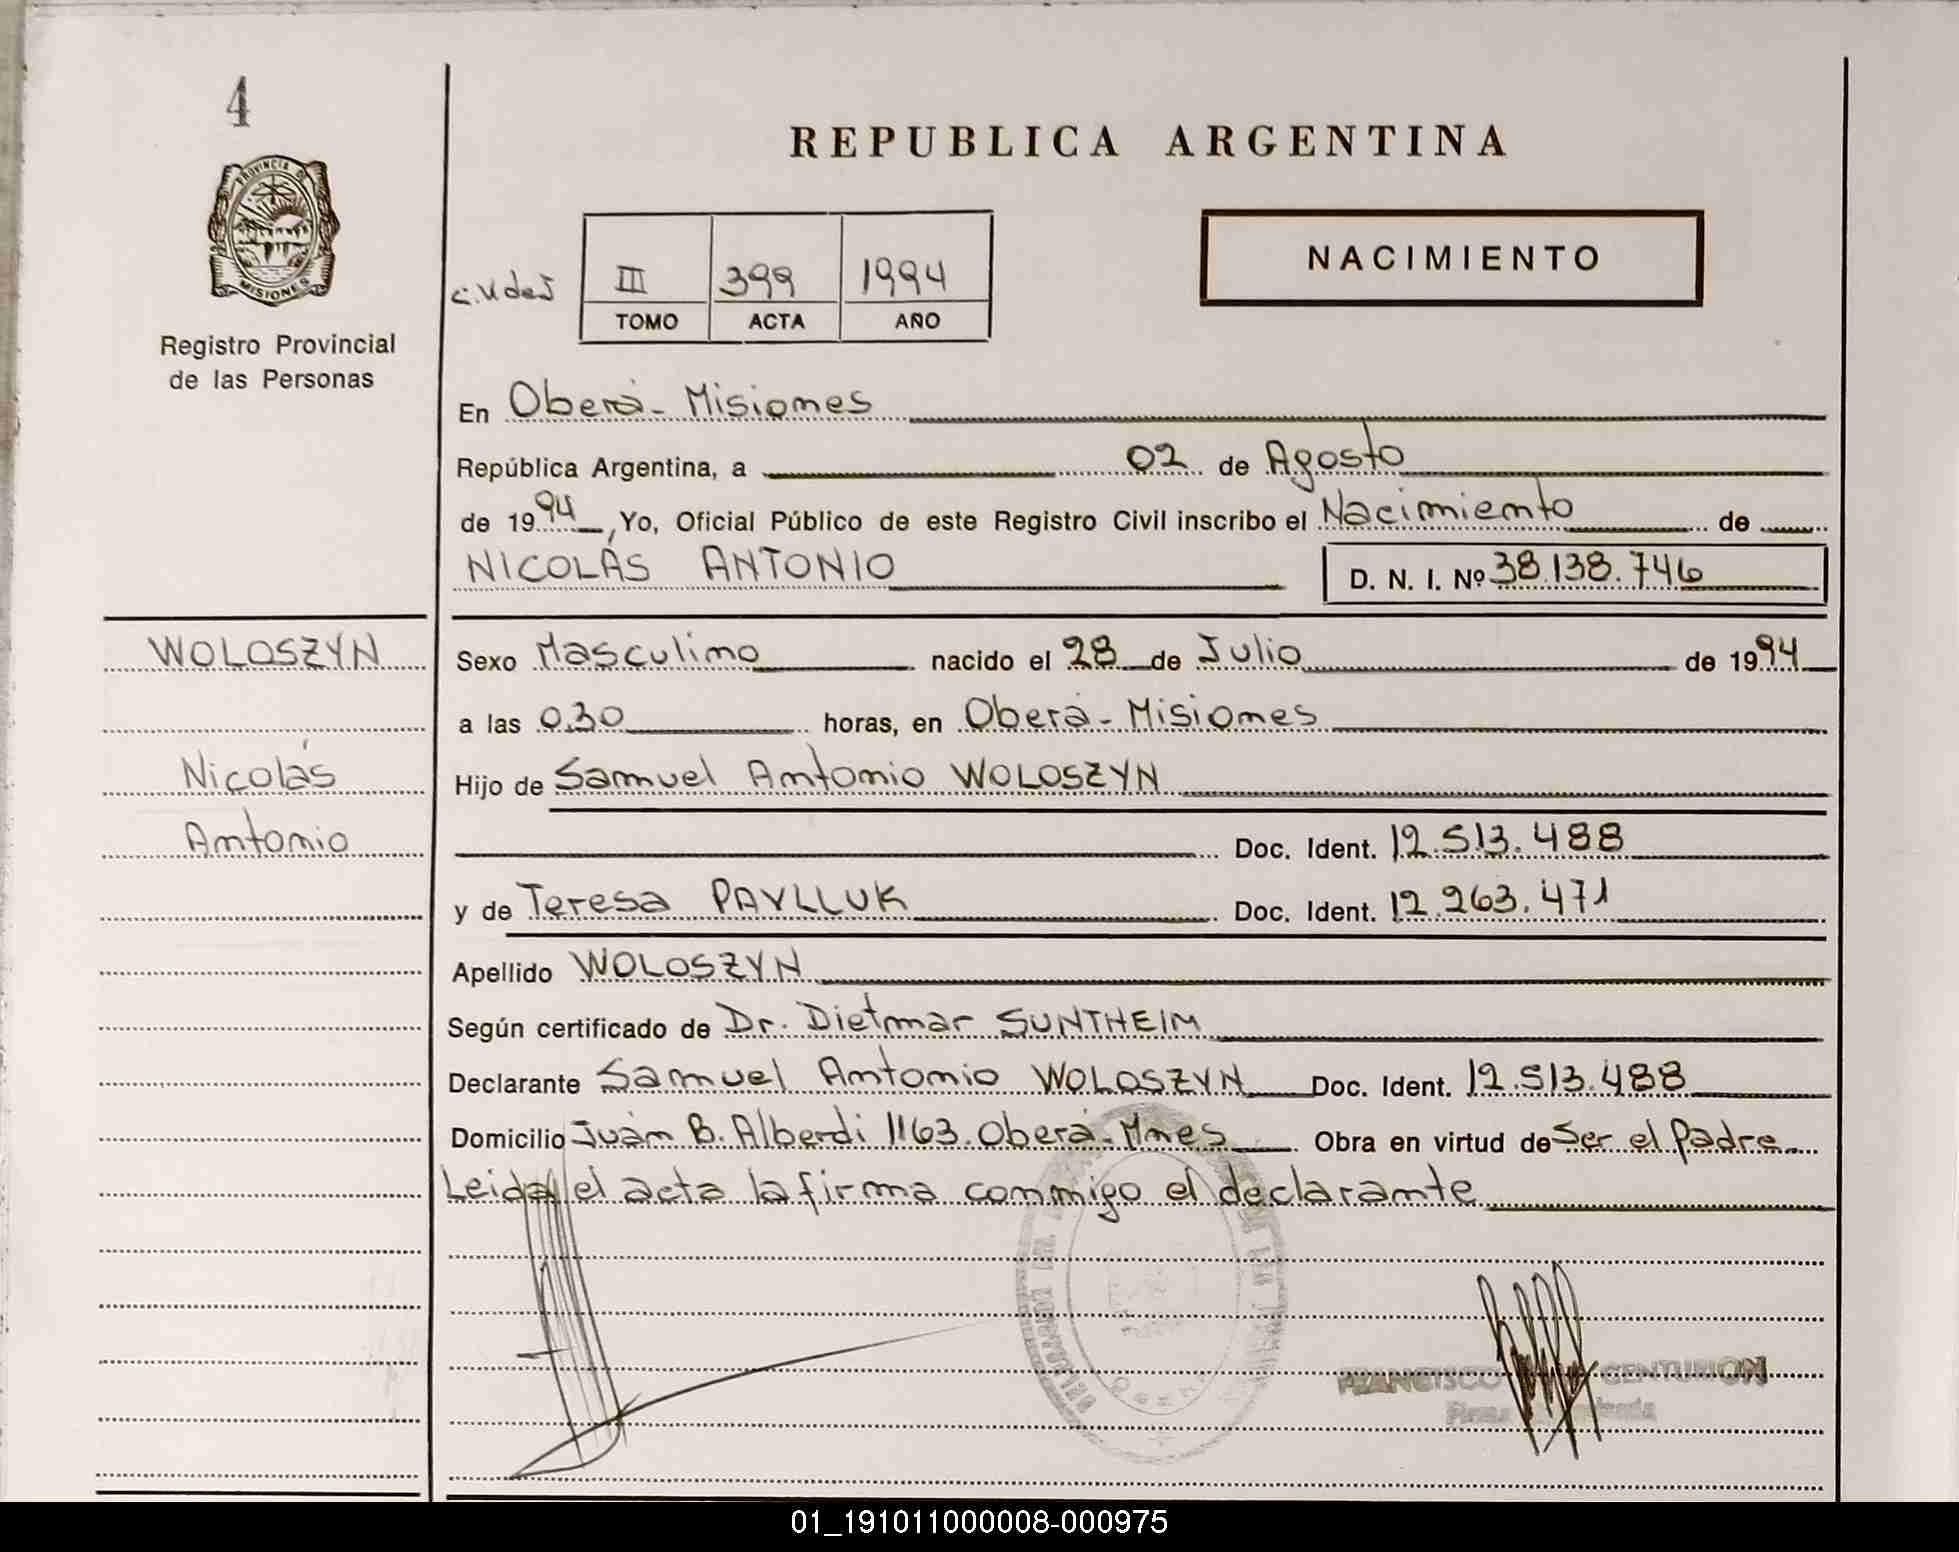 4
PROVINCIA DE
MISIONES
Registro Provincial
de las Personas
REPUBLICA ARGENTINA
NACIMIENTO
ciudad III 399 1994
TOMO ACTA AÑO
En Oberá - Misiones
República Argentina, a 02 de Agosto
de 1994, Yo, Oficial Público de este Registro Civil inscribo el Nacimiento de
NICOLÁS ANTONIO D. N. I. Nº 38.138.746
WOLOSZYN
Nicolás
Antonio
Sexo Masculino nacido el 28 de Julio de 1994
a las 0.30 horas, en Oberá - Misiones
Hijo de Samuel Antonio WOLOSZYN
Doc. Ident. 12.513.488
y de Teresa PAVLLUK Doc. Ident. 12.263.471
Apellido WOLOSZYN
Según certificado de Dr. Dietmar SUNTHEIM
Declarante Samuel Antonio WOLOSZYN Doc. Ident. 12.513.488
Domicilio Juán B. Alberdi 1163. Oberá - Mnes Obra en virtud de Ser el Padre
Leida el acta la firma conmigo el declarante
FRANCISCO CENTURION
Firma
01_191011000008-000975